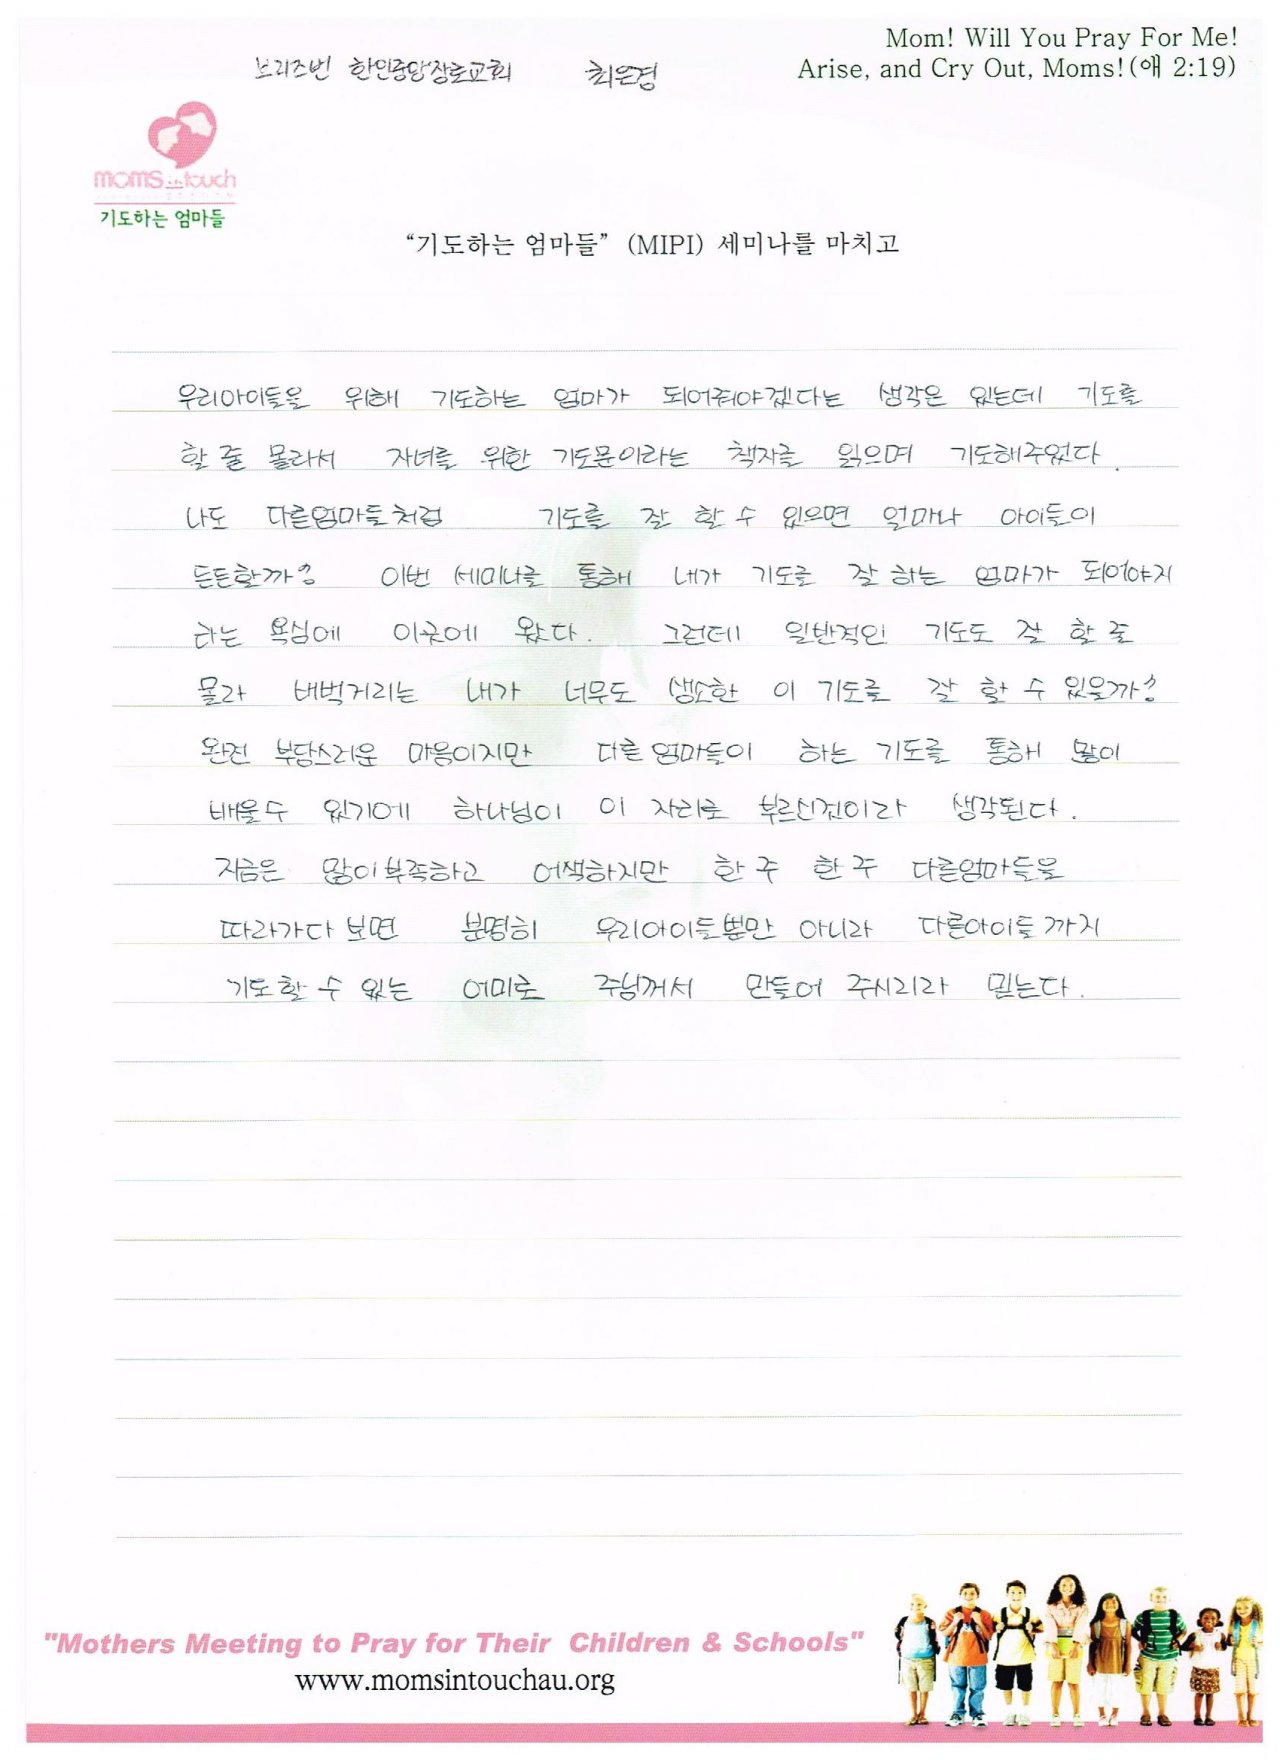 Mom! Will You Pray For Me!
브리즈번 한인중앙장로교회 최은경
Arise, and Cry Out, Moms!(애 2:19)
moms in touch
기도하는 엄마들
“기도하는 엄마들” (MIPI) 세미나를 마치고
우리아이들을 위해 기도하는 엄마가 되어줘야겠다는 생각은 있는데 기도를
할 줄 몰라서 자녀를 위한 기도문이라는 책자를 읽으며 기도해주었다.
나도 다른엄마들처럼 기도를 잘 할 수 있으면 얼마나 아이들이
든든할까? 이번 세미나를 통해 내가 기도를 잘 하는 엄마가 되어야지
라는 욕심에 이곳에 왔다. 그런데 일반적인 기도도 잘 할 줄
몰라 버벅거리는 내가 너무도 생소한 이 기도를 잘 할 수 있을까?
완전 부담스러운 마음이지만 다른 엄마들이 하는 기도를 통해 많이
배울수 있기에 하나님이 이 자리로 부르신것이라 생각된다.
지금은 많이부족하고 어색하지만 한 주 한 주 다른엄마들을
따라가다 보면 분명히 우리아이들뿐만 아니라 다른아이들 까지
기도할 수 있는 어미로 주님께서 만들어 주시리라 믿는다.
"Mothers Meeting to Pray for Their Children & Schools"
www.momsintouchau.org